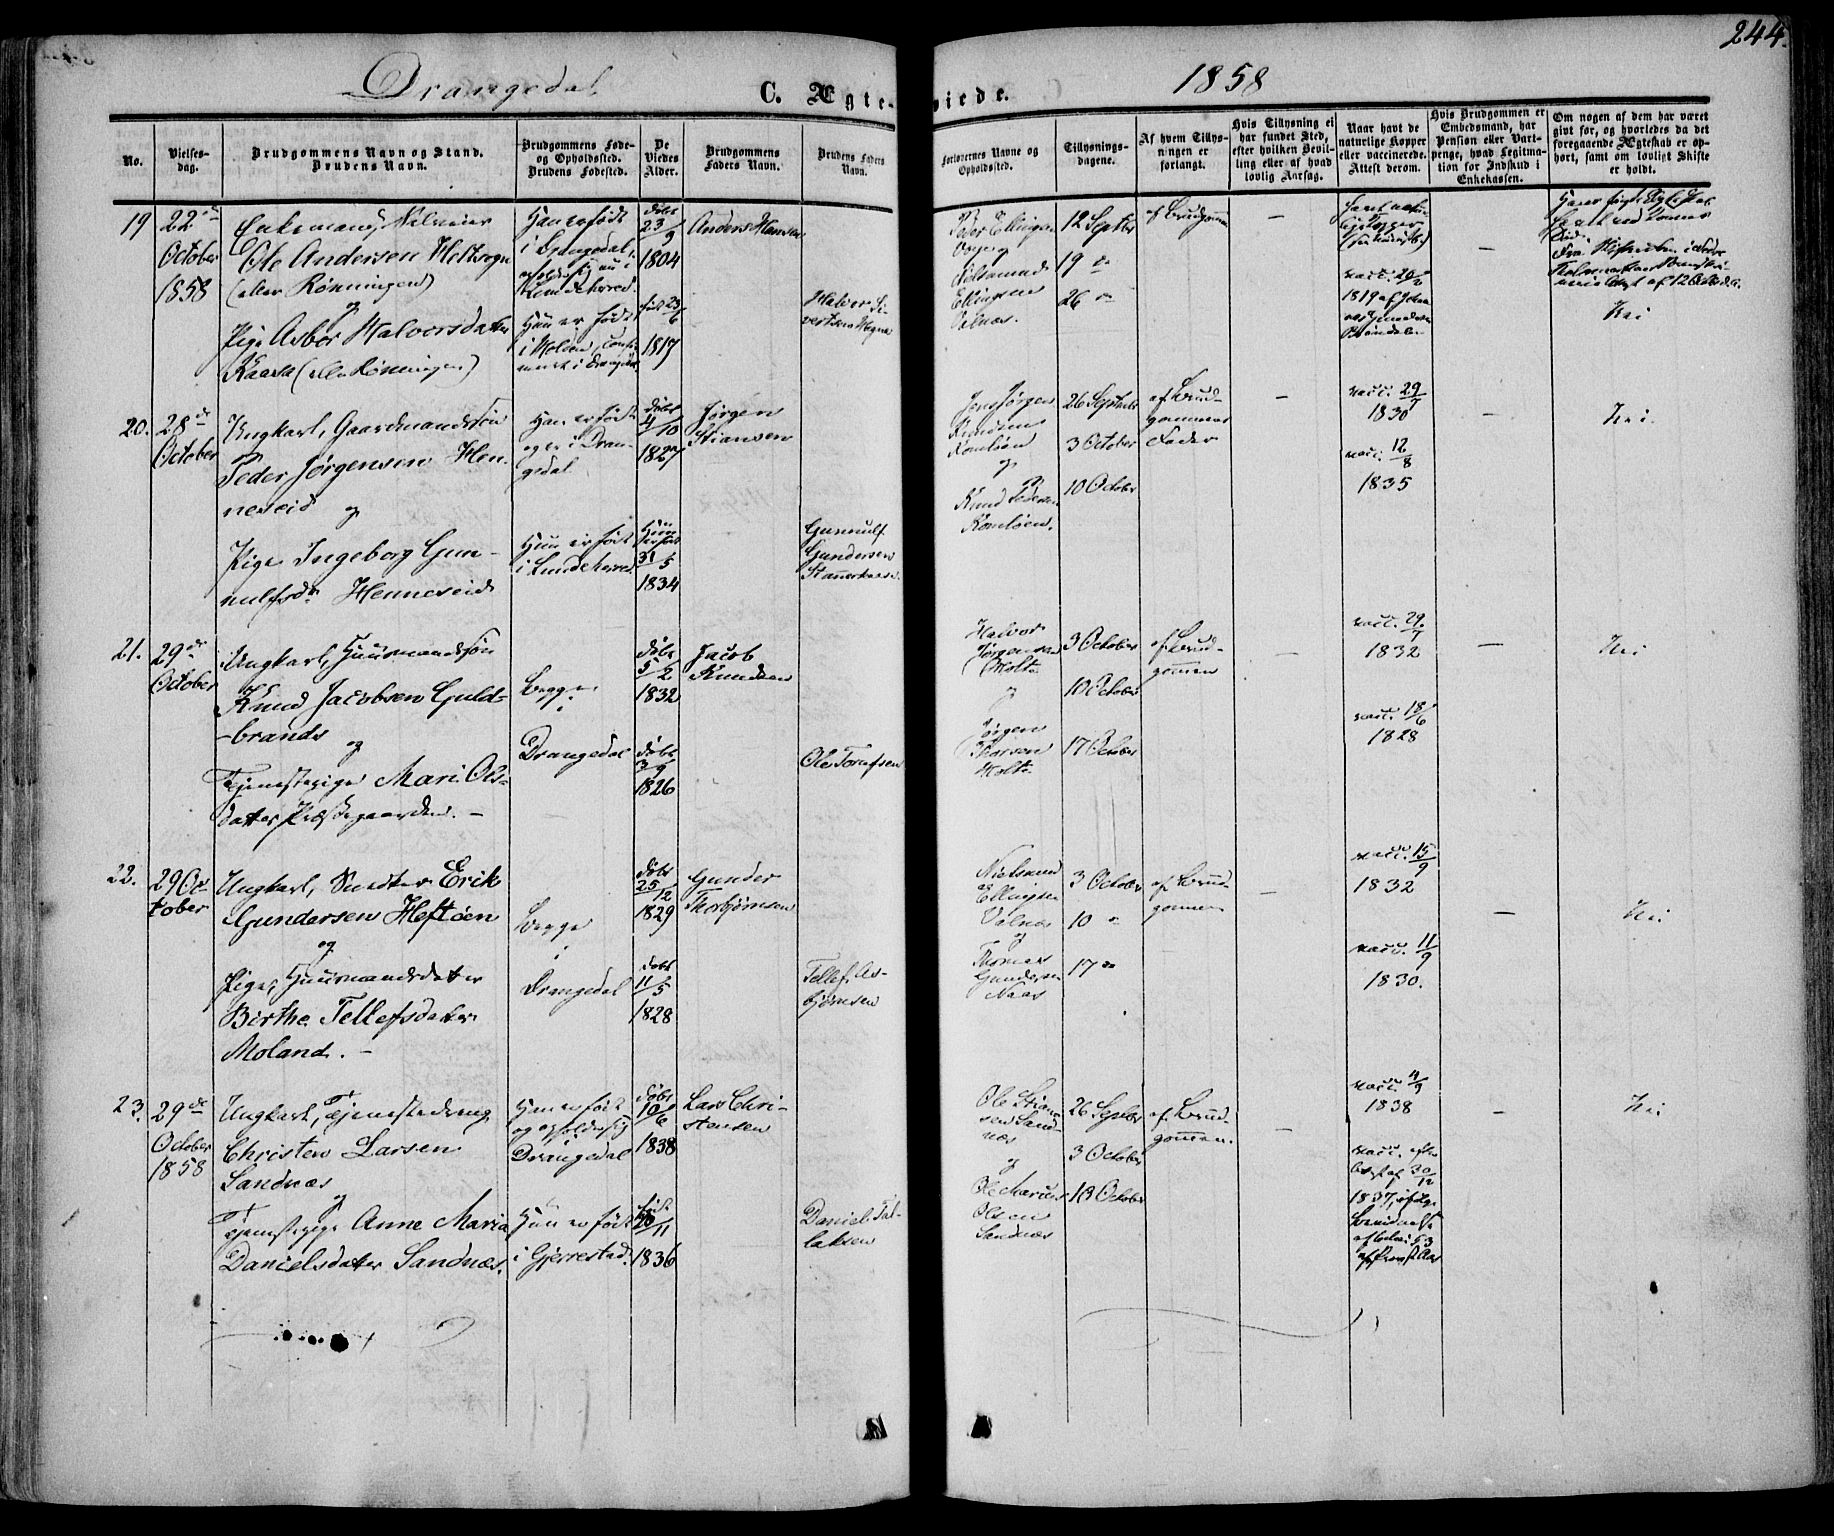 244.
Drangedal
C. Ægteviede.
1858
No.
Vielses-
dag.
Brudgommens Navn og Stand.
Brudens Navn.
Brudgommens Føde-
og Opholdssted.
Brudens Fødested.
De
Viedes
Alder.
Brudgommens
Faders Navn.
Brudens Faders
Navn.
Forlovernes Navne og
Opholdssted.
Tillysnings-
dagene.
Af hvem Tillys-
ningen er
forlangt.
Hvis Tillysning ei
har fundet Sted,
efter hvilken Bevil-
ling eller af hvad
lovlig Aarsag.
Naar havt de
naturlige Kopper
eller vaccinerede.
Attest derom.
Hvis Brudgommen er
Embedsmand, har
Pension eller Vart-
penge, hvad Legitima-
tion for Indskud i
Enkekassen.
Om nogen af dem har været
givt før, og hvorledes da det
foregaaende Ægteskab er op-
hørt, samt om lovligt Skifte
er holdt.
19
22de
October
1858
Enkemand
Ole Andersen Heltsogn
(eller Rønningen)
og
Pige Asbør Halvorsdatter
Kaasa (eller Rønningen)
Han er født
i Drangedal,
opholder sig nu i
Lundeherred.
Hun er født
i Holden, confir-
meret i Drangedal
døbt
23/9
1804
født 23/6
1817
Anders Hansen
Halvor Si-
vertsen
Peder Ellingsen
og
Ellingsen
Vølnæs.
12 Septbr
19 do
26 do
af Brudgommen
-
vacc. 20/2
1819 af
-
Nei
20.
28de
October
Ungkarl, Gaardmandssøn
Peder Jørgensen Hen-
neseid og
Pige Ingeborg Gun-
nulfsdr Henneseid
Han er født
og er i Dran-
gedal
Hun er født
i Lundeherred
døbt
4/10
1827
Hun
født
31/5
1834
Jørgen
Stiansen
Gunnulf
Gundersen
Jens Jørgen
Knudsen
og
Knud Pedersen
26 Septbr
3 October
10 October
af Brud-
gommens
Fader
-
vacc. 29/7
1830
vacc. 12/8
1835
-
Nei.
21.
29de
October
Ungkarl, Huusmandssøn
Knud Jacobsen Guld-
brands
og
Tjenestepige Mari Ols-
datter Præstegaarden. -
Begge
i
Drangedal
døbt
5/2
1832
døbt
3/9
1826
Jacob
Knudsen
Ole Torsten
Halvor
Jørgensen
Holte
og
Jørgen
Thorsen
Holte
3 October
10 October
17 October
af Brud-
gommen
-
vacc. 29/7
1832
vacc. 18/6
1828
-
Nei
22.
29 Oc-
tober
Ungkarl, Smedter Erik
Gundersen Heftøen
og
Pige, Huusmandsdatter
Birthe Tellefsdatter
Moland. -
Begge
i
Drangedal
døbt
25/12
1829
døbt
11/5
1828
Gunder
Thorbjørnsen
Tellef As-
bjørnsen
Ellingsen
Vølnæs
og
Thomas
Gundersen
Naas
3 October
10 "
17 do
af Brud-
gommen
-
vacc. 15/9
1832
vacc. 11/9
1830.
-
Nei
23.
29de
October
1858
Ungkarl, Tjenestedreng
Christen Larsen
Sandnæs
og
Tjenestepige Anne Maria
Danielsdatter Sandnæs.
Han er født
og opholder sig
Drangedal
Hun er født
i Gjerrestad.
døbt
10/6
1838
født
20/11
1836
Lars Chri-
stensen
Daniel Tal-
laksen
Ole Stian-
sen Sand-
næs
og
Ole Marius
Olsen
Sandnæs
26 Septbr
3 October
10 October
af Brud-
gommen.
-
vacc. 4/9
1838
vacc. efter
Attest af 30/12
1837,
-
Nei